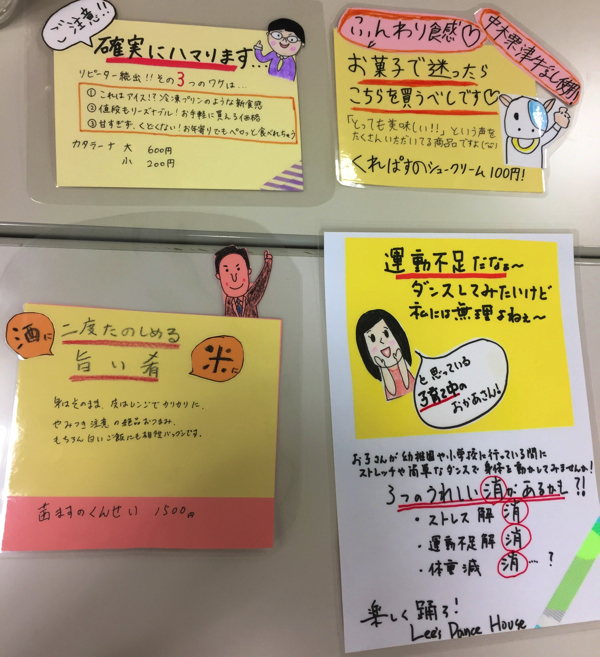 ご注意!!
確実にハマります…
リピーター続出!!その3つのワケは…
①これはアイス!?冷凍プリンのような新食感
②値段もリーズナブル!お手軽に買える価格
③甘すぎず、くどくない!お年寄りでもペロッと食べれちゃう
カタラーナ 大 600円
小 200円
ふんわり食感♡
中木栗津牛なし使用
お菓子で迷ったら
こちらを買うべしです♡
「とっても美味しい!!」という声を
たくさんいただいてる商品ですよ(^^)
くれぱすのシュークリーム100円!
酒に
二度たのしめる
旨い肴
米に
身はそのまま、皮はレンジでカリカリに、
やみつき注意の絶品おつまみ。
もちろん白いご飯にも相性バツグンです。
ますのくんせい 1500円
運動不足だなぁ~
ダンスしてみたいけど
私には無理よねぇ~
と思っている
子育て中の
おかあさん!
お子さんが幼稚園や小学校に行っている間に
ストレッチや簡単なダンスで身体を動かしてみませんか!
3つのうれしい消があるかも?!
・ストレス解消
・運動不足解消
・体重減消…?
楽しく踊ろ!
Lee's Dance House